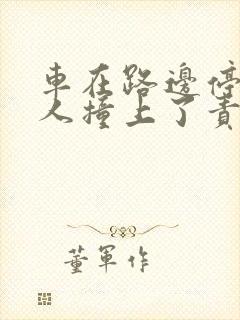 車在路邊停
人撞上了責
董軍作